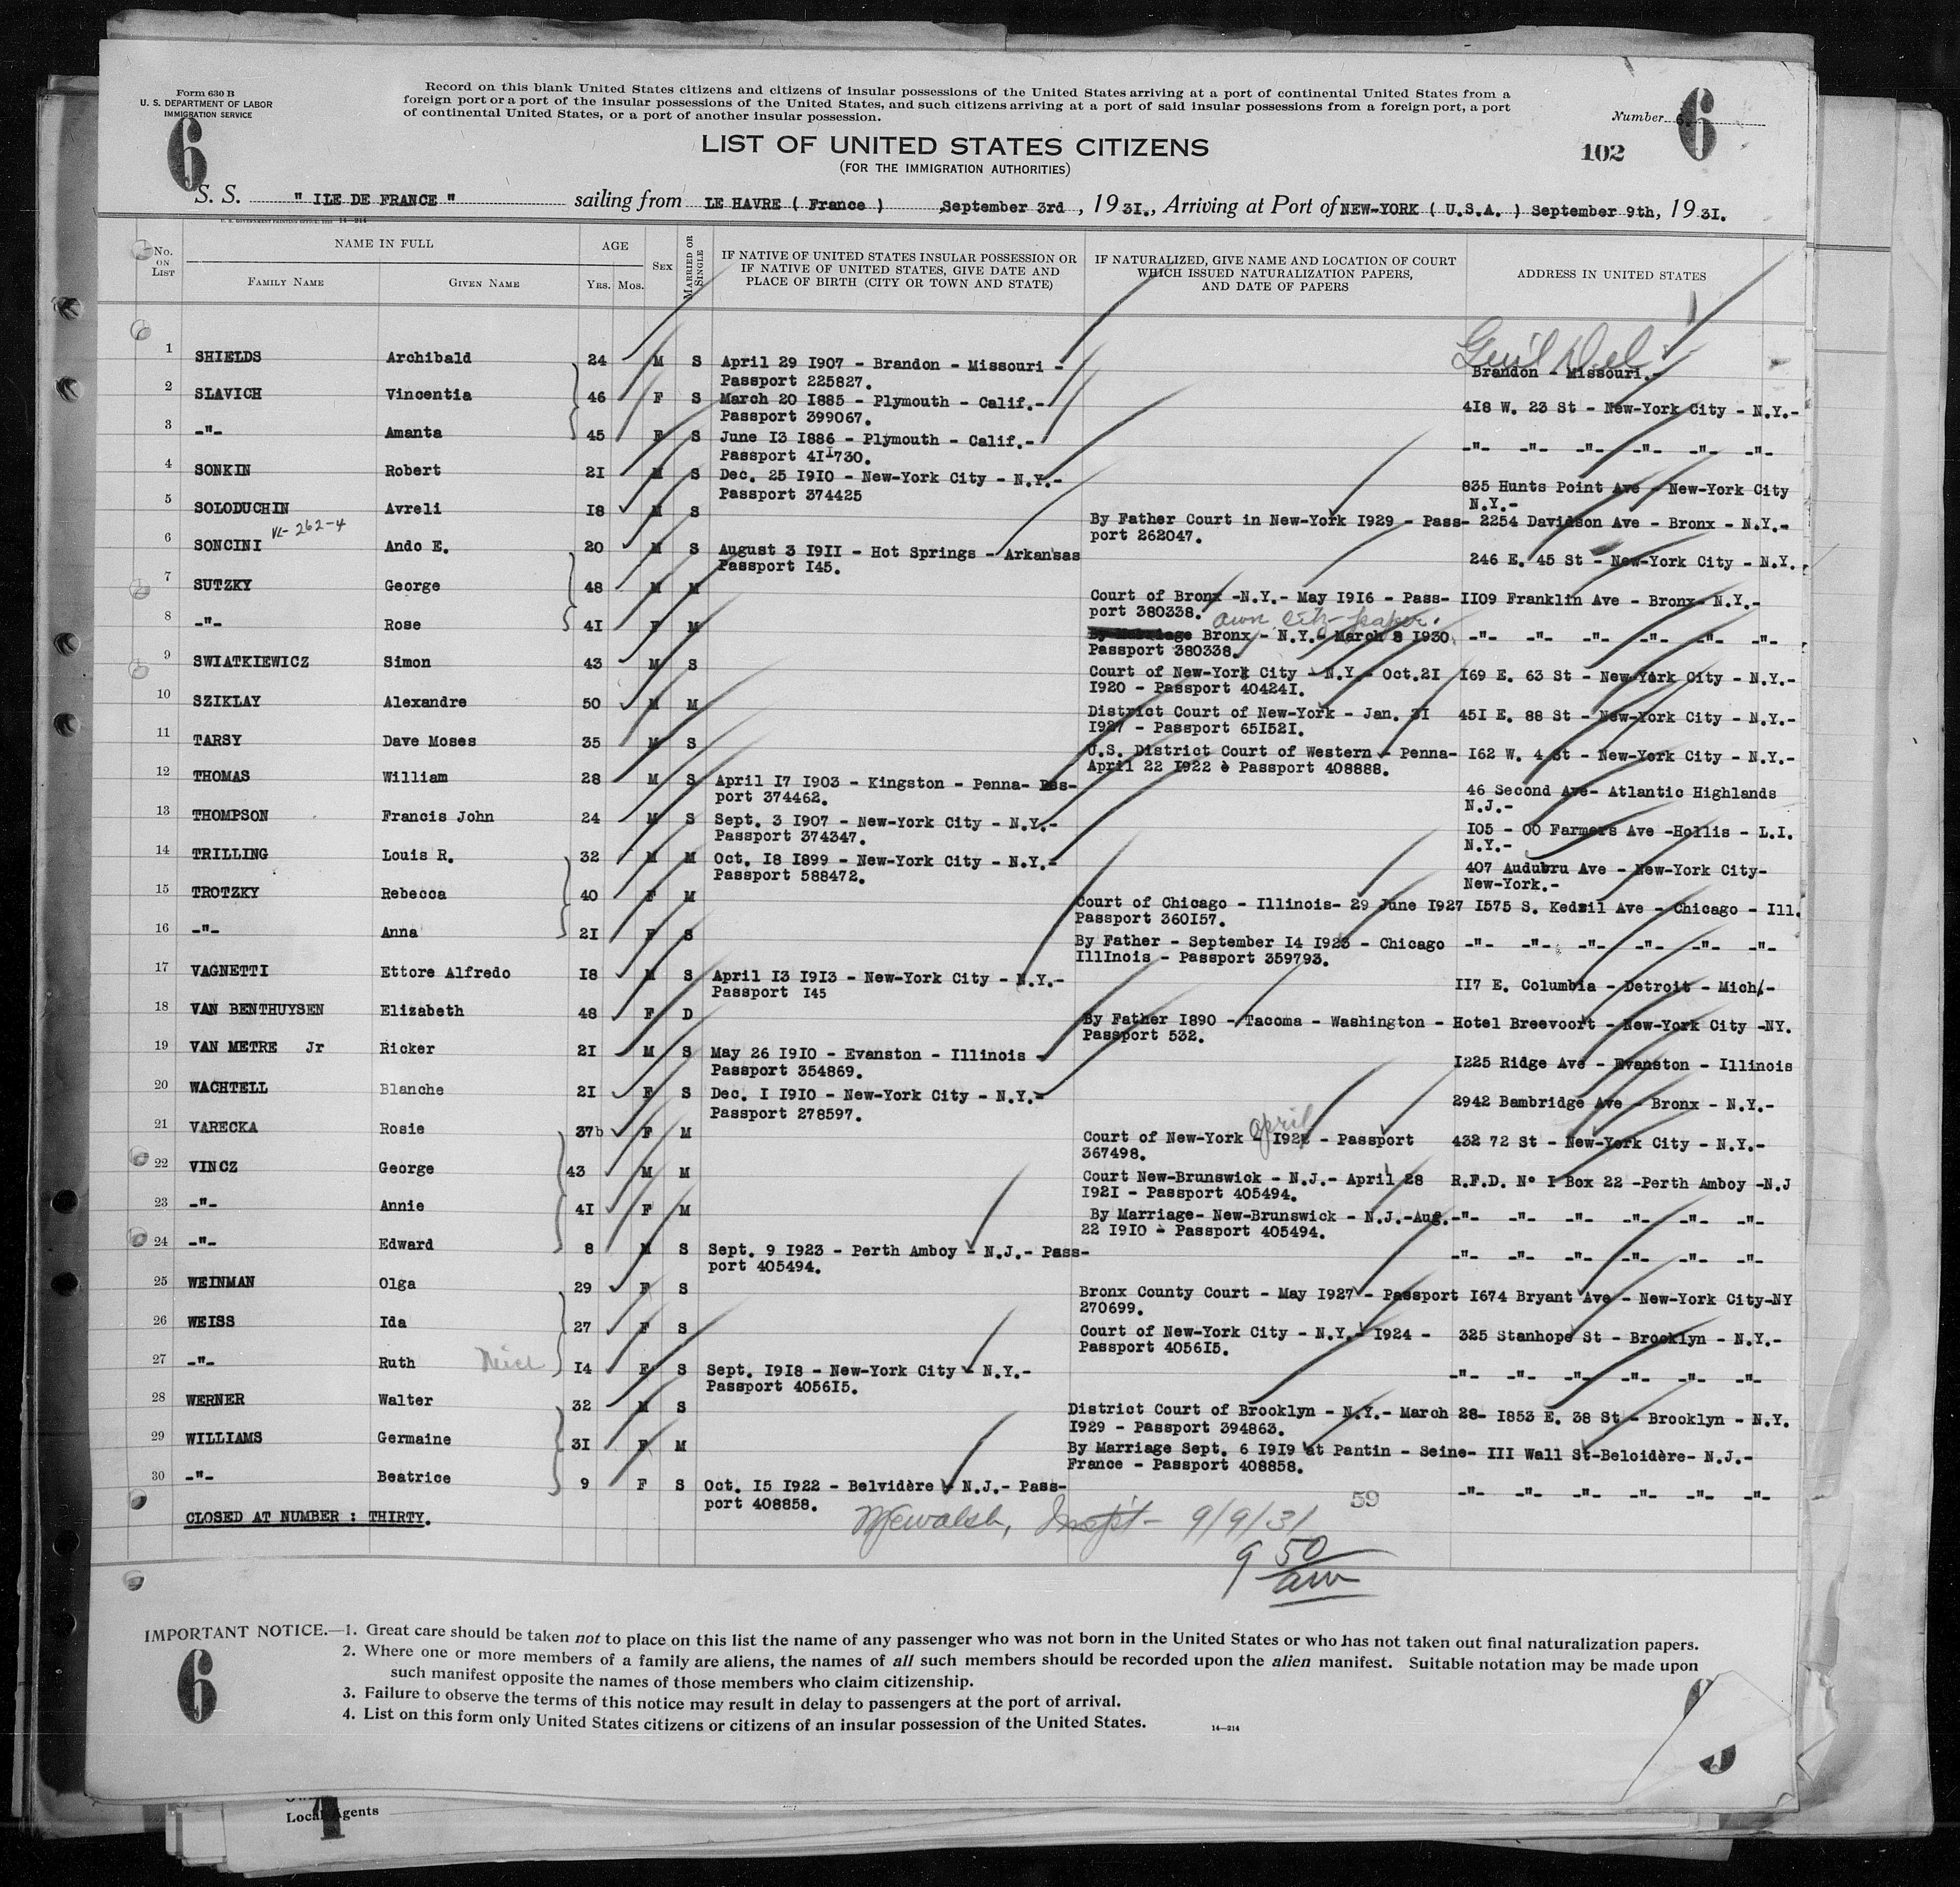 Form 630 B
U. S. DEPARTMENT OF LABOR
IMMIGRATION SERVICE
Record on this blank United States citizens and citizens of insular possessions of the United States arriving at a port of continental United States from a
foreign port or a port of the insular possessions of the United States, and such citizens arriving at a port of said insular possessions from a foreign port, a port
of continental United States, or a port of another insular possession.
Number 6.
6
6
102
LIST OF UNITED STATES CITIZENS
(FOR THE IMMIGRATION AUTHORITIES)
S. S. " ILE DE FRANCE " sailing from LE HAVRE ( France ) September 3rd , 19 31., Arriving at Port of NEW-YORK ( U.S.A. ) September 9th, 19 31.
No. ON LIST NAME IN FULL AGE SEX MARRIED OR SINGLE IF NATIVE OF UNITED STATES INSULAR POSSESSION OR IF NATIVE OF UNITED STATES, GIVE DATE AND PLACE OF BIRTH (CITY OR TOWN AND STATE) IF NATURALIZED, GIVE NAME AND LOCATION OF COURT WHICH ISSUED NATURALIZATION PAPERS, AND DATE OF PAPERS ADDRESS IN UNITED STATES
FAMILY NAME GIVEN NAME YRS. MOS.
1 SHIELDS Archibald 24 M S April 29 1907 - Brandon - Missouri - Brandon - Missouri.-
Passport 225827.
2 SLAVICH Vincentia 46 F S March 20 1885 - Plymouth - Calif.- 418 W. 23 St - New-York City - N.Y.-
Passport 399067.
3 -"- Amanta 45 F S June 13 1886 - Plymouth - Calif.- -"- -"- -"- -"- -"- -"-
Passport 411730.
4 SONKIN Robert 21 M S Dec. 25 1910 - New-York City - N.Y.- 835 Hunts Point Ave - New-York City
Passport 374425 N.Y.-
5 SOLODUCHIN Avreli 18 M S By Father Court in New-York 1929 - Pass- 2254 Davidson Ave - Bronx - N.Y.-
port 262047.
6 SONCINI Ando E. 20 M S August 3 1911 - Hot Springs - Arkansas 246 E. 45 St - New-York City - N.Y.
Passport 145.
7 SUTZKY George 48 M M Court of Bronx -N.Y.- May 1916 - Pass- 1109 Franklin Ave - Bronx- N.Y.-
port 380338. own citz paper.
8 -"- Rose 41 F M By Marriage Bronx - N.Y.- March 8 1930 -"- -"- -"- -"- -"- -"-
Passport 380338.
9 SWIATKIEWICZ Simon 43 M S Court of New-York City - N.Y.- Oct.21 169 E. 63 St - New-York City - N.Y.-
1920 - Passport 404241.
10 SZIKLAY Alexandre 50 M M District Court of New-York - Jan. 31 451 E. 88 St - New-York City - N.Y.-
1927 - Passport 651521.
11 TARSY Dave Moses 35 M S U.S. District Court of Western - Penna- 162 W. 4 St - New-York City - N.Y.-
April 22 1922 - Passport 408888.
12 THOMAS William 28 M S April 17 1903 - Kingston - Penna- Pas- 46 Second Ave- Atlantic Highlands
port 374462. N.J.-
13 THOMPSON Francis John 24 M S Sept. 3 1907 - New-York City - N.Y.- 105 - 00 Farmers Ave -Hollis - L.I.
Passport 374347. N.Y.-
14 TRILLING Louis R. 32 M M Oct. 18 1899 - New-York City - N.Y.- 407 Audubru Ave - New-York City-
Passport 588472. New-York.-
15 TROTZKY Rebecca 40 F M Court of Chicago - Illinois- 29 June 1927 1575 S. Kedzil Ave - Chicago - Ill.
Passport 360157.
16 -"- Anna 21 F S By Father - September 14 1923 - Chicago -"- -"- -"- -"- -"- -"-
IllInois - Passport 359793.
17 VAGNETTI Ettore Alfredo 18 M S April 13 1913 - New-York City - N.Y.- 117 E. Columbia - Detroit - Mich.-
Passport 145
18 VAN BENTHUYSEN Elizabeth 48 F D By Father 1890 - Tacoma - Washington - Hotel Breevoort - New-York City -NY.
Passport 532.
19 VAN METRE Jr Ricker 21 M S May 26 1910 - Evanston - Illinois - 1225 Ridge Ave - Evanston - Illinois
Passport 354869.
20 WACHTELL Blanche 21 F S Dec. 1 1910 - New-York City - N.Y.- 2942 Bambridge Ave - Bronx - N.Y.-
Passport 278597.
21 VARECKA Rosie 37 F M Court of New-York - April 1922 - Passport 432 72 St - New-York City - N.Y.-
367498.
22 VINCZ George 43 M M Court New-Brunswick - N.J.- April 28 R.F.D. N° 1 Box 22 -Perth Amboy -N.J
1921 - Passport 405494.
23 -"- Annie 41 F M By Marriage- New-Brunswick - N.J.-Aug. -"- -"- -"- -"- -"- -"-
22 1910 - Passport 405494.
24 -"- Edward 8 M S Sept. 9 1923 - Perth Amboy - N.J.- Pass- -"- -"- -"- -"- -"- -"-
port 405494.
25 WEINMAN Olga 29 F S Bronx County Court - May 1927 - Passport 1674 Bryant Ave - New-York City-NY
270699.
26 WEISS Ida 27 F S Court of New-York City - N.Y.- 1924 - 325 Stanhope St - Brooklyn - N.Y.-
Passport 405615.
27 -"- Ruth 14 F S Sept. 1918 - New-York City - N.Y.- -"- -"- -"- -"- -"- -"-
Passport 405615.
28 WERNER Walter 32 M S District Court of Brooklyn - N.Y.- March 28- 1853 E. 38 St - Brooklyn - N.Y.
1929 - Passport 394863.
29 WILLIAMS Germaine 31 F M By Marriage Sept. 6 1919 at Pantin - Seine- 111 Wall St-Beloidère- N.J.-
France - Passport 408858.
30 -"- Beatrice 9 F S Oct. 15 1922 - Belvidère - N.J.- Pass- -"- -"- -"- -"- -"- -"-
port 408858.
59
CLOSED AT NUMBER : THIRTY.
Inspt - 9/9/31
9 50 am
IMPORTANT NOTICE.—1. Great care should be taken not to place on this list the name of any passenger who was not born in the United States or who has not taken out final naturalization papers.
2. Where one or more members of a family are aliens, the names of all such members should be recorded upon the alien manifest. Suitable notation may be made upon
such manifest opposite the names of those members who claim citizenship.
3. Failure to observe the terms of this notice may result in delay to passengers at the port of arrival.
4. List on this form only United States citizens or citizens of an insular possession of the United States.
14—214
6
Local Agents